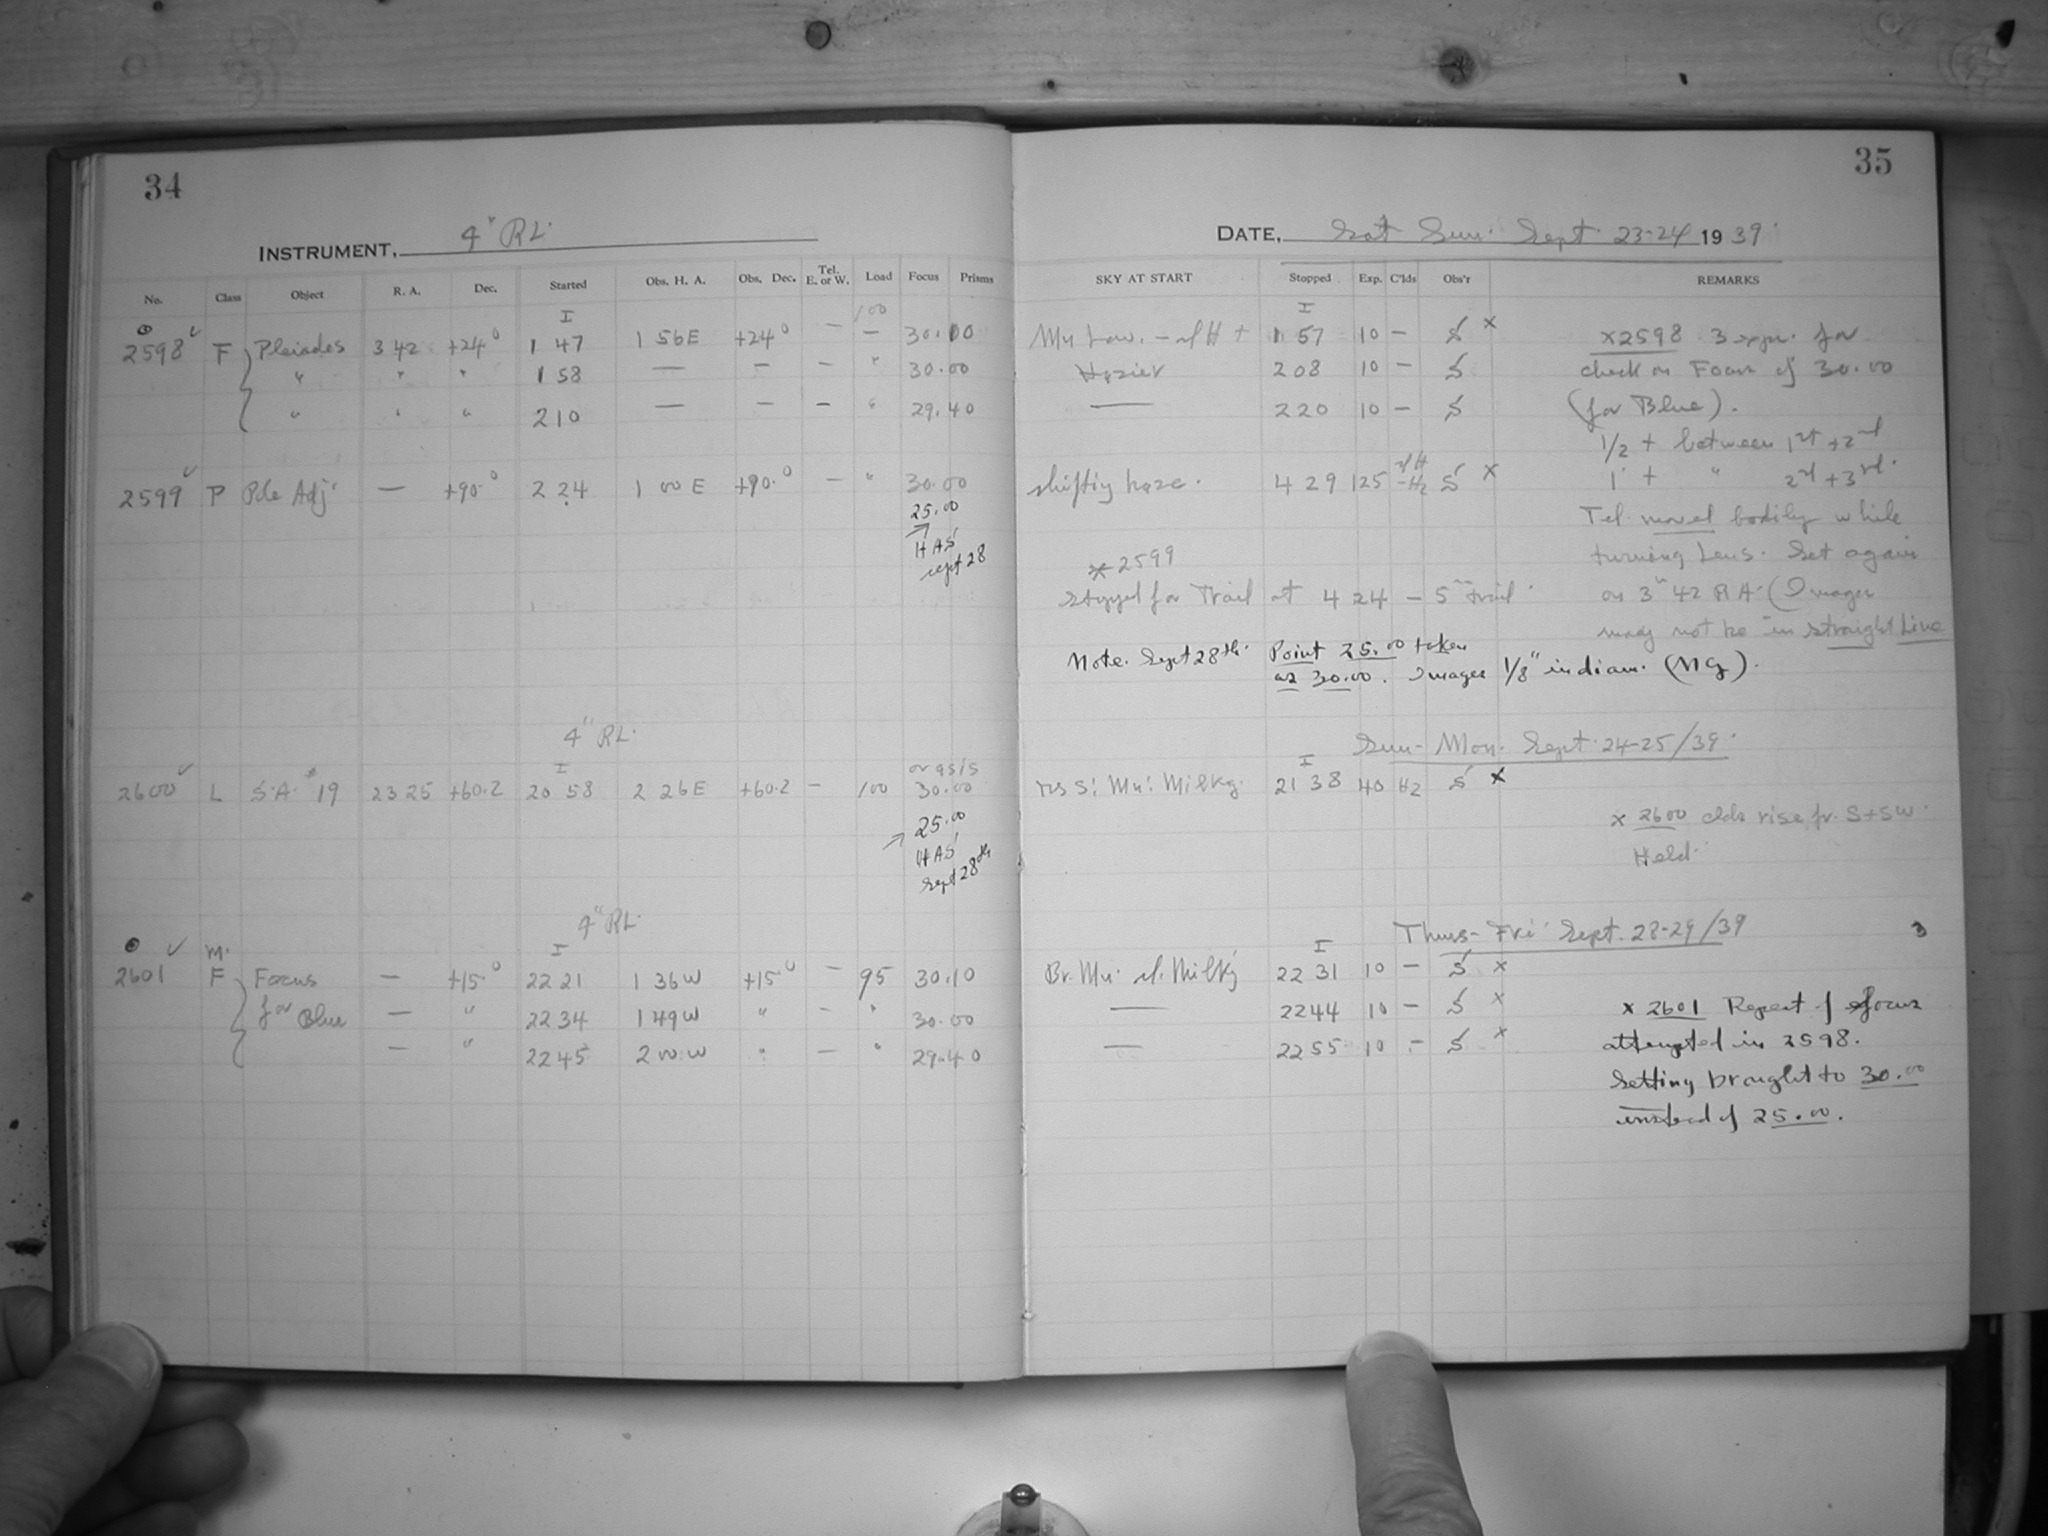 34
INSTRUMENT, 4" RL.
No. Class Object R. A. Dec. Started Obs. H. A. Obs. Dec. Tel. E. or W. Load Focus Prisms
I 100
2598 F Pleiades 3 42 +24° 1 47 1 56E +24° — — 30.10
" " " 1 58 — — — " 30.00
" " " 2 10 — — — " 29.40
2599 P Pole Adj. — +90.° 2 24 1 00 E +90.° — " 30.00
25.00
HAS
Sept 28
4" RL.
I
2600 L S.A. 19 23 25 +60.2 20 58 2 26E +60.2 — 100 30.00
25.00
HAS
Sept 28th
4" RL.
M. I
2601 F Focus — +15.° 22 21 1 36W +15.° — 95 30.10
for Blue — " 22 34 1 49W " — " 30.00
— " 22 45 2 00W " — " 29.40
35
DATE, Sat Sun. Sept. 23-24 1939.
SKY AT START Stopped Exp. C'lds Obs'r REMARKS
I
Mn Low. 1 57 10 — S x
Hazier 2 08 10 — S
— 2 20 10 — S
shifting haze. 4 29 125 S x
x2598 3 exps. for
check on Focus of 30.00
(for Blue).
1/2 + between 1st + 2nd
1 + " 2nd + 3rd.
Tel. moved bodily while
turning Lens. Set again
on 3h 42 RA. (Images
may not be in straight Line
x2599
Stopped for Trail at 4 24 — 5m trail.
Note. Sept 28th. Point 25.00 taken
as 30.00. Images 1/8" in diam. (NG).
Sun- Mon. Sept. 24-25/39.
I
Mn. Milky. 21 38 40 Hz S x
x 2600 clds rise fr. S+SW.
Held.
Thurs- Fri. Sept. 28-29/39 3
I
Br. Mn. sl. Milky 22 31 10 — S x
— 22 44 10 — S x
— 22 55 10 — S x
x 2601 Repeat of focus
attempted in 2598.
Setting brought to 30.00
instead of 25.00.